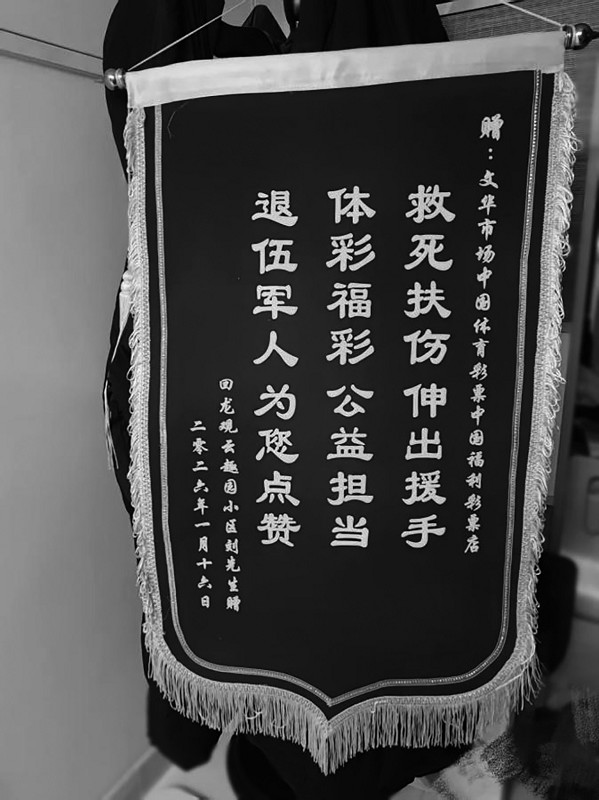 赠：文华市场中国体育彩票中国福利彩票店
救死扶伤伸出援手
体彩福彩公益担当
退伍军人为您点赞
回龙观云趣园小区刘先生赠
二零二六年一月十六日